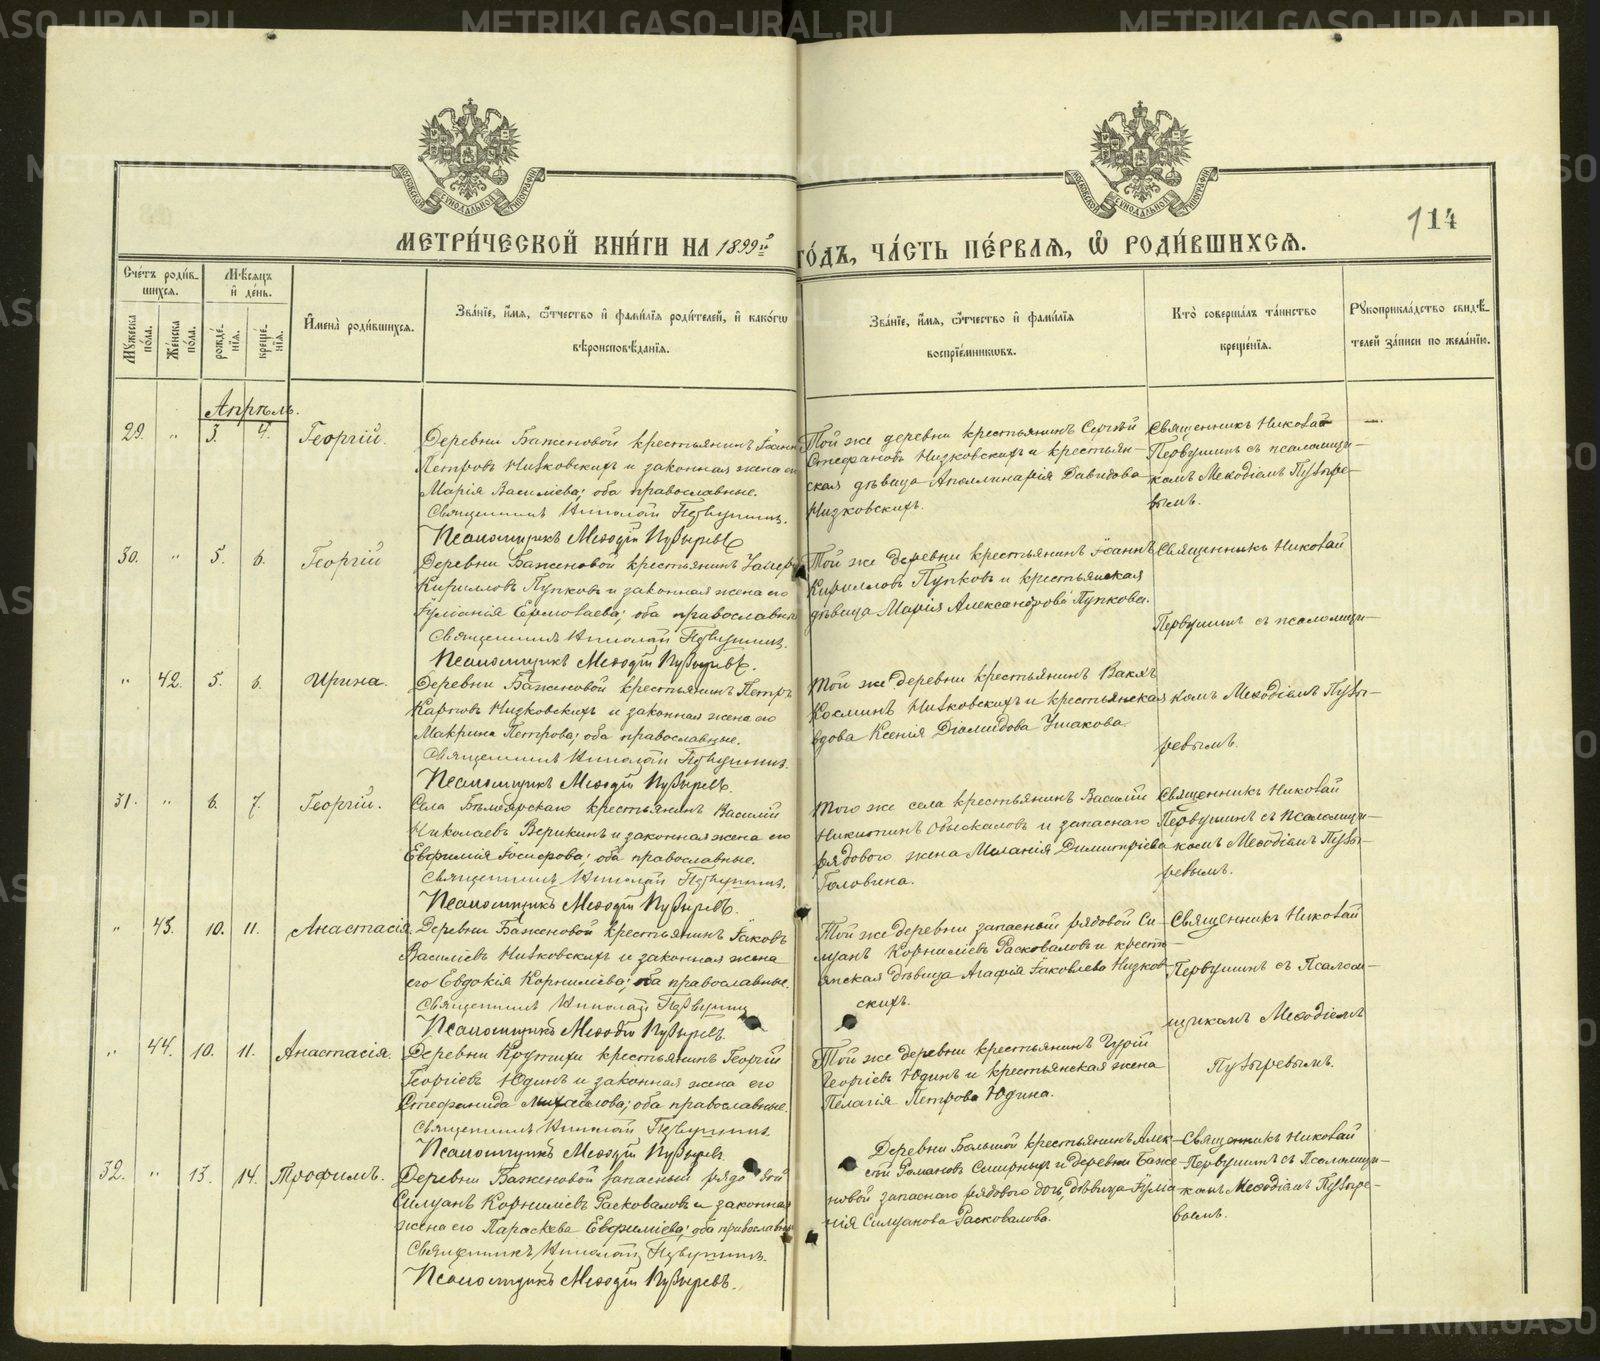 МЕТРИ́ЧЕСКОЙ КНИ́ГИ НА 1899й
ГО́ДЪ, ЧА́СТЬ ПЕ́РВАЯ, Ѽ РОДИ́ВШИХСЯ.
114
Сче́тъ роди́в-
шихся.
Мѣ́сяцъ
и҆ де́нь.
Мꙋ́жеска по́ла.
Же́нска по́ла.
рожде́нїя.
креще́нїя.
И҆мена̀ роди́вшихся.
Зва́нїе, и҆́мя, ѻ҆́тчество и҆ фами́лїя роди́телей, и҆ како́гѡ
вѣроисповѣ́данїя.
Зва́нїе, и҆́мя, ѻ҆́тчество и҆ фами́лїя
воспрїе́мникѡвъ.
Кто̀ соверша́лъ та́инство
креще́нїя.
Рꙋкоприкла́дство свидѣ́-
телей за́писи по жела́нїю.
Апрѣль.
29. " 3. 4. Георгій.
Деревни Баженовой крестьянинъ Іоаннъ
Петровъ Низковскихъ и законная жена его
Марія Василіева; оба православные.
Священникъ Николай Первушинъ.
Псаломщикъ Меѳодій Пузыревъ
Той же деревни крестьянинъ Сергѣй
Стефановъ Низковскихъ и крестьян-
ская дѣвица Аполлинарія Давидова
Низковскихъ.
Священникъ Николай
Первушинъ съ псаломщи-
комъ Меѳодіемъ Пузыре-
вымъ.
30. " 5. 6. Георгій
Деревни Баженовой крестьянинъ
Кирилловъ Пупковъ и законная жена его
Іуліанія Ермолаева; оба православные
Священникъ Николай Первушинъ.
Псаломщикъ Меѳодій Пузыревъ.
Той же деревни крестьянинъ Іоаннъ
Кирилловъ Пупковъ и крестьянская
дѣвица Марія Александрова Пупкова.
Священникъ Николай
Первушинъ съ псаломщи-
" 42. 5. 6. Ирина.
Деревни Баженовой крестьянинъ Петръ
Карповъ Низковскихъ и законная жена его
Макрина Петрова; оба православные.
Священникъ Николай Первушинъ.
Псаломщикъ Меѳодій Пузыревъ.
Той же деревни крестьянинъ
Косминъ Низковскихъ и крестьянская
вдова Ксенія Діомидова Ушакова.
комъ Меѳодіемъ Пузы-
ревымъ.
31. " 6. 7. Георгій.
Села Бѣлоярскаго крестьянинъ Василій
Николаевъ Верикинъ и законная жена его
Евфимія Іосифова; оба православные.
Священникъ Николай Первушинъ.
Псаломщикъ Меѳодій Пузыревъ.
Того же села крестьянинъ Василій
Никитинъ Обыскаловъ и запаснаго
рядового жена Меланія Димитріева
Головина.
Священникъ Николай
Первушинъ съ Псаломщи-
комъ Меѳодіемъ Пузы-
ревымъ.
" 43. 10. 11. Анастасія.
Деревни Баженовой крестьянинъ Іаковъ
Василіевъ Низковскихъ и законная жена
его Евдокія Корнилієва; оба православные.
Священникъ Николай Первушинъ
Псаломщикъ Меѳодій Пузыревъ.
Той же деревни запасный рядовой Си-
луанъ Корниліевъ Расковаловъ и кресть-
янская дѣвица Агафія Іаковлева Низков-
скихъ.
Священникъ Николай
Первушинъ съ Псалом-
щикомъ Меѳодіемъ
" 44. 10. 11. Анастасія.
Деревни Крутихи крестьянинъ Георгій
Георгіевъ Юдинъ и законная жена его
Стефанида Михайлова; оба православные.
Священникъ Николай Первушинъ.
Псаломщикъ Меѳодій Пузыревъ.
Той же деревни крестьянинъ Гурій
Георгіевъ Юдинъ и крестьянская жена
Пелагія Петрова Юдина.
Пузыревымъ.
32. " 13. 14. Трофимъ.
Деревни Баженовой запасный рядовой
Силуанъ Корниліевъ Расковаловъ и законная
жена его Параскева Евфиміева; оба православные
Священникъ Николай Первушинъ.
Псаломщикъ Меѳодій Пузыревъ.
Деревни Большой крестьянинъ Алек-
сѣй Романовъ Смирныхъ и деревни Баже-
новой запаснаго рядового дочь, дѣвица Іулiа-
нія Силуанова Расковалова.
Священникъ Николай
Первушинъ съ Псаломщи-
комъ Меѳодіемъ Пузыре-
вымъ.
METRIKI.GASO-URAL.RU